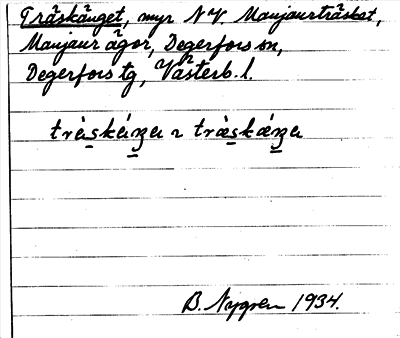 Träskänget, myr N V. Manjaurträsket,
Manjaur ägor, Degerfors sn,
Degerfors tg, Västerb. l.
B. Nygren 1934.